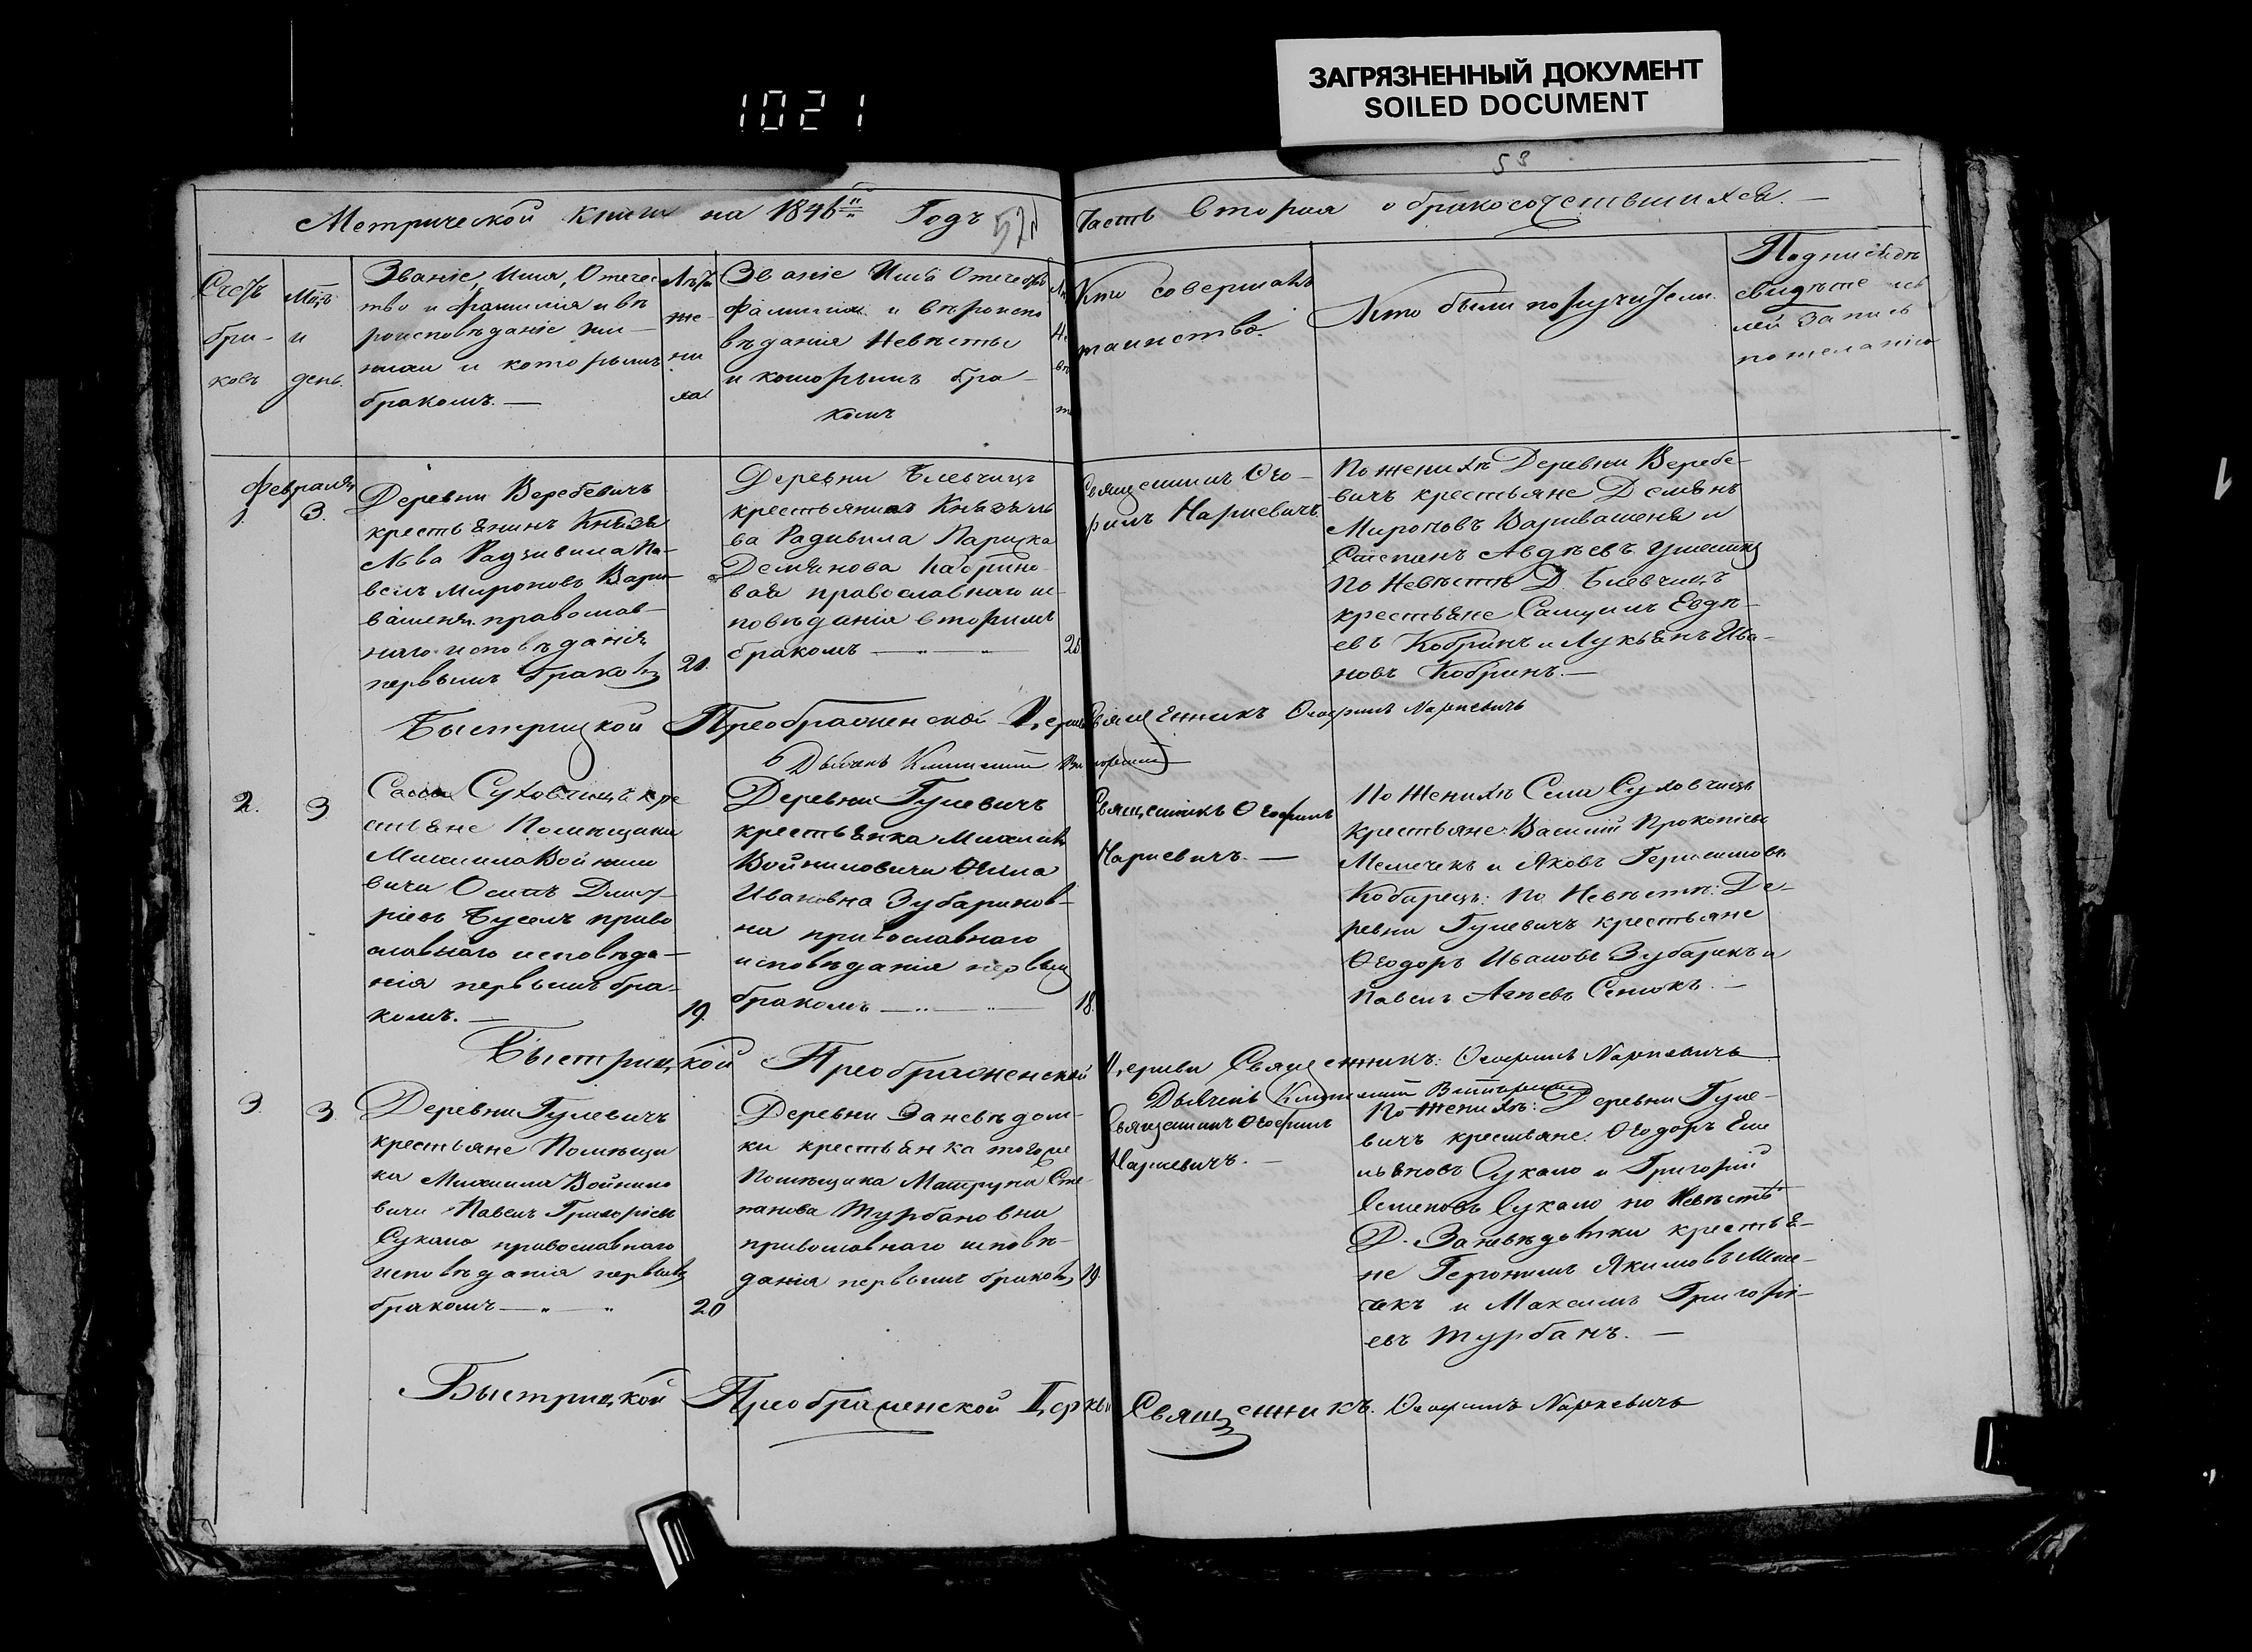 ЗАГРЯЗНЕННЫЙ ДОКУМЕНТ
SOILED DOCUMENT
1021
53
Метрической книги на 1846й Годъ
Часть вторая о бракосочетавшихся.—
Счетъ
бра-
ковъ
Мцъ
и
день.
Званіе, Имя, Отечес
тво и фамилія и вѣ
роисповѣданіе же—
ниха и которымъ
бракомъ.—
Лѣта
же-
ни
ха
Званіе Имя Отечество
фамилія и вѣроиспо
вѣданія Невѣсты
и которымъ бра—
комъ
Кто совершалъ
таинство.
Кто были поручители.
Подпись
свидѣте
лей Запись
по желанію
Февраля
1.
3.
Деревни Веребевичъ
крестьянинъ Князя
Льва Радзивила Па-
велъ Мироновъ Вари-
вашеня православ—
наго исповѣданія
первымъ бракомъ
20.
Деревни Блевчицъ
крестьянка Князя Ль
ва Радивила Париска
Демянова Кабрино-
вая православнаго ис-
повѣданія вторымъ
бракомъ — „ — „
25
Священникъ Ѳео-
филъ Наркевичъ.
По женихѣ Деревни Веребе-
вичъ крестьяне Демянъ
Мироновъ Варивашеня и
Авдѣевъ
По Невѣстѣ Д. Блевчицъ
крестьяне Евдѣ-
евъ Кобринъ и Лукьянъ Ива-
новъ Кобринъ.—
Быстрицкой Преображенской Церкви Священникъ Ѳеофилъ Наркевичъ
Дьячекъ Климентій
2.
3
Села Суховчицъ кре
стьяне Помѣщика
Михаила Войнило
вича Осипъ Дмит-
ріевъ Буселъ право
славнаго исповѣда—
нія первымъ бра-
комъ.—
19.
Деревни Гулевичъ
крестьянка Михаила
Войниловича Анна
Ивановна Зубаринов-
на православнаго
исповѣданія первымъ
бракомъ — „ — „
18.
Священникъ Ѳеофилъ
Наркевичъ.—
По Женихѣ Села Суховчицъ
Крестьяне: Василій Прокопіевъ
Мелечекъ и Яковъ Герасимовъ
Кобарецъ: По Невѣстѣ: Де-
ревни Гулевичъ крестьяне
Ѳеодоръ Ивановъ Зубарекъ и
Павелъ Сенюкъ.—
Быстрицкой Преображенской Церкви Священникъ: Ѳеофилъ Наркевичъ
Дьячекъ Климентій
3.
3.
Деревни Гулевичъ
крестьяне Помѣщи
ка Михаила Войнило
вича Павелъ Григоріевъ
Сукало православнаго
исповѣданія первымъ
бракомъ — „ „
20
Деревни Заневѣдом-
ки крестьянка того же
Помѣщика Матруна Сте-
панова Турбановна
православнаго исповѣ-
данія первымъ бракомъ
19.
Священникъ Ѳеофилъ
Наркевичъ.—
По Женихѣ: Деревни Гуле-
вичъ крестьяне: Ѳеодоръ Еме
льяновъ Сукало и Григорій
Семеновъ Сукало по Невѣстѣ
Д. Заневѣдомки крестья-
не Геронимъ Якимовъ Меле-
чекъ и Максимъ Григорі-
евъ Турбанъ.—
Быстрицкой Преображенской Церкви Священникъ. Ѳеофилъ Наркевичъ